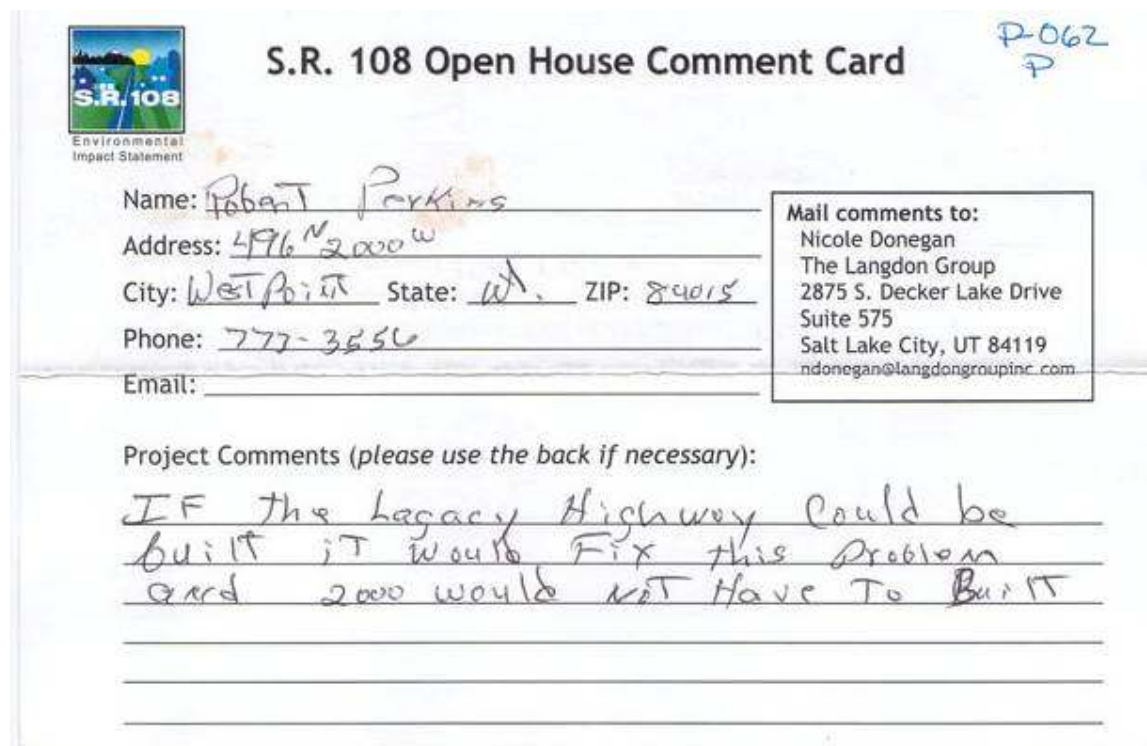 P-062
P
S.R. 108 Open House Comment Card
S.R. 108
Environmental
Impact Statement
Name: Robert Perkins
Address: 496 N 2000 W
City: West Point State: Ut. ZIP: 84015
Phone: 777-3556
Email:
Mail comments to:
Nicole Donegan
The Langdon Group
2875 S. Decker Lake Drive
Suite 575
Salt Lake City, UT 84119
ndonegan@langdongroupinc.com
Project Comments (please use the back if necessary):
IF the Legacy Highway Could be
built iT Would Fix this Problem
and 2000 would NOT Have To Built